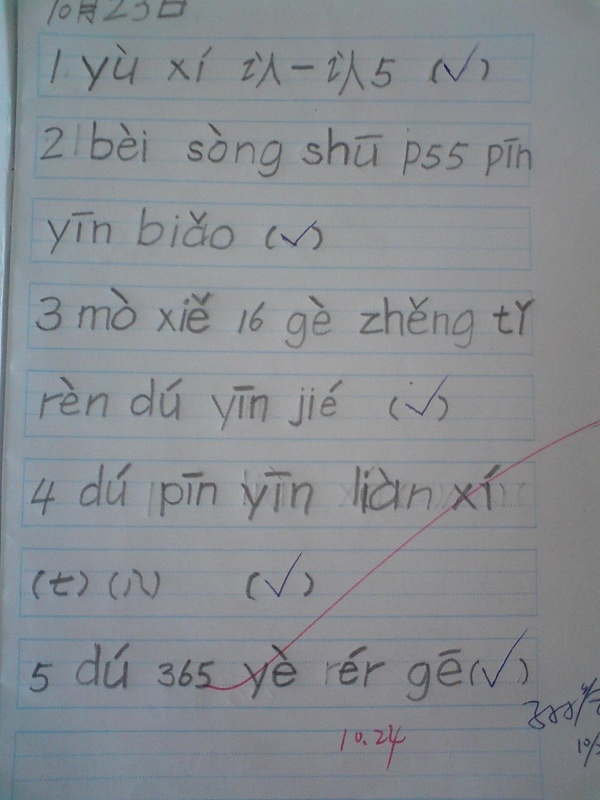 10月23日
1 yù xí 认一认5 (✓)
2 bèi sòng shū p55 pīn
yīn biǎo (✓)
3 mò xiě 16 gè zhěng tǐ
rèn dú yīn jié (✓)
4 dú pīn yīn liàn xí
(七)(八) (✓)
5 dú 365 yè rér gē(✓)
10.24